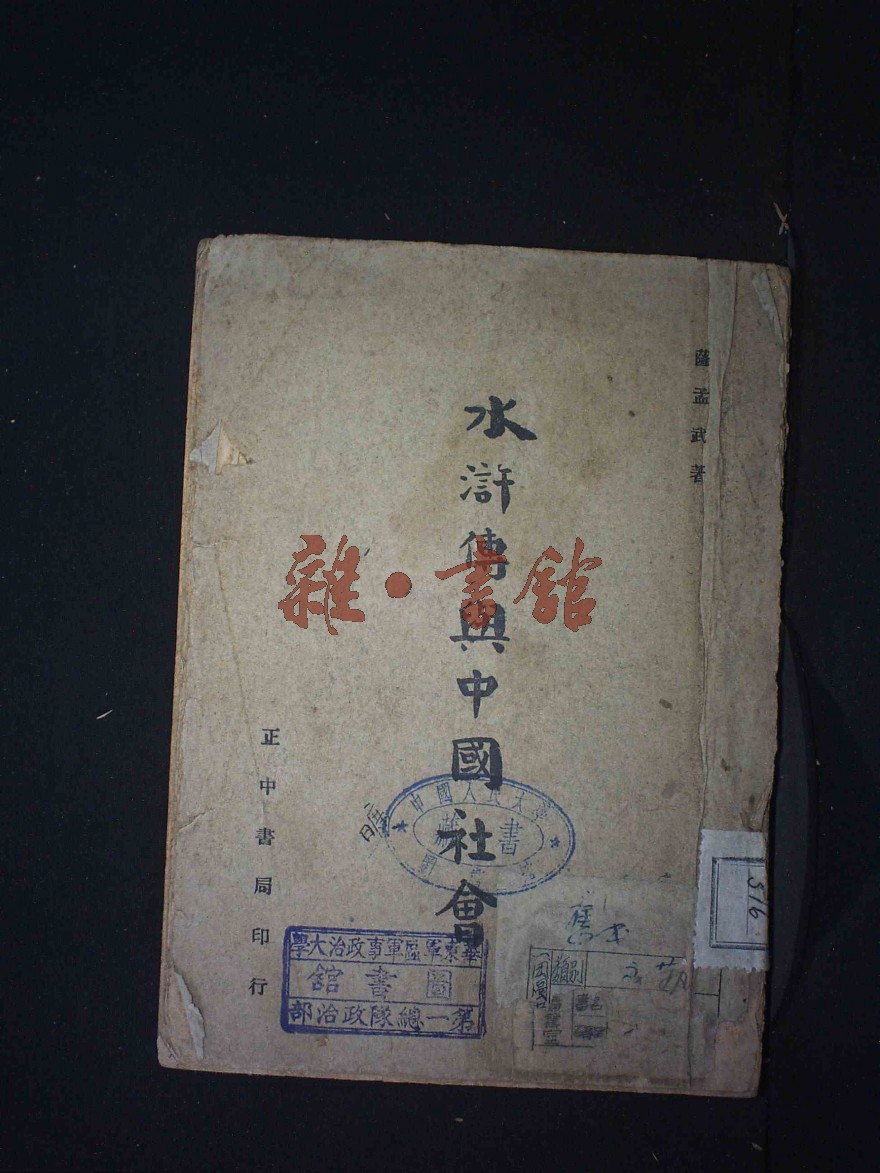 薩孟武著
水滸傳與中國社會
正中書局印行
雜·書館
中國人民大學
藏書
華東軍區軍事政治大學
圖書館
第一總隊政治部
516